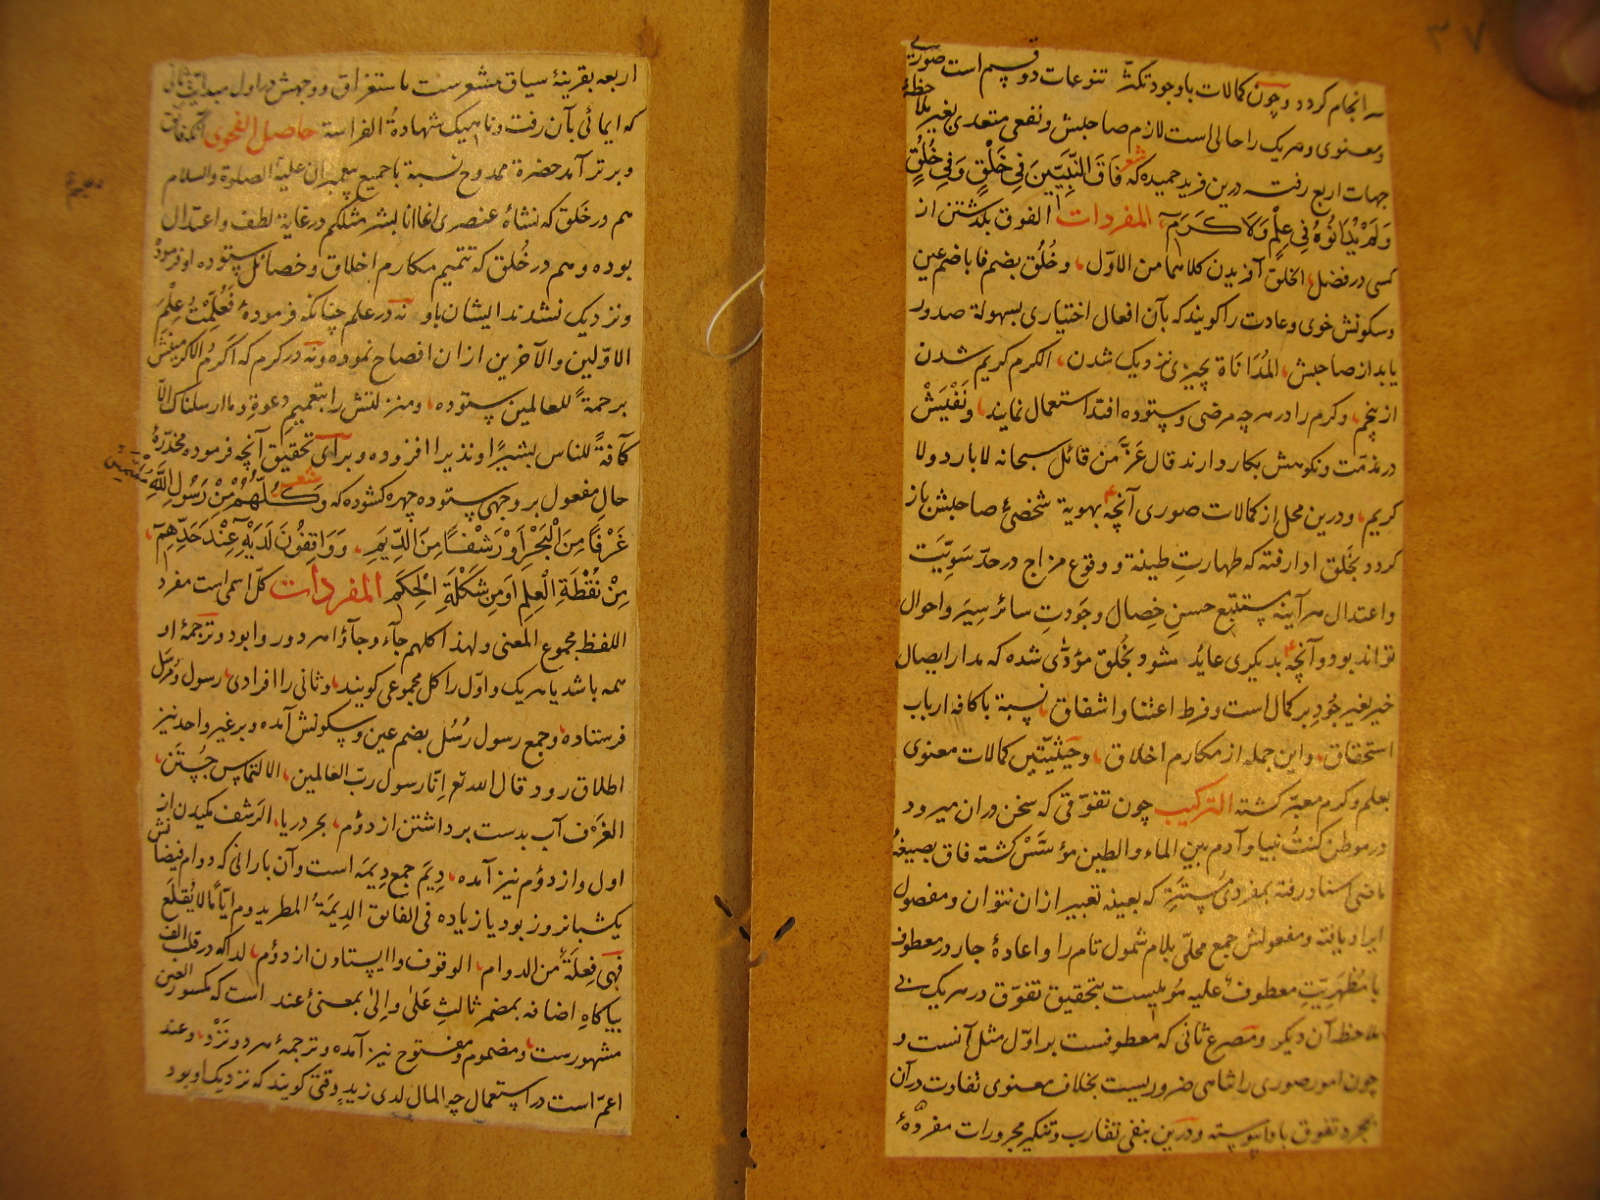 سرانجام کردد وچون کمالات باوجود تکثّر تنوعات دو قسم است صوری
ومعنوی وهریک را حالی است لازم صاحبش ونفعی متعدی بغیر بملاحظهٔ
جهات اربع رفته درین فرید حمیده که شعر فَاقَ النَّبِیّینَ فِی خَلْقٍ وَفِی خُلُقٍ
وَلَمْ یُدَانُوهُ فِی عِلْمٍ وَلَا کَرَمٍ المفردات الفوق بکذشتن از
کسی در فضل، الخلق آفریدن کلاهما من الاوّل، وخُلُق بضم فا باضم عین
وسکونش خوی وعادت را کویند که بآن افعال اختیاری بسهولة صدور
یابد از صاحبش، المُدَانَاة بچیزی نزدیک شدن، الکرم کریم شدن
از پنجم، وکرم را در هرچه مرضی وستوده افتد استعمال نمایند، ونَفْیَش
در مذمت ونکوهش بکار دارند قال عَزَّ مَن قائل سبحانه لا بارد ولا
کریم، ودرین محل از کمالات صوری آنچه بهویة شخصیٔ صاحبش باز
کردد بخَلق ادا رفته که طهارتِ طینة ووقوع مزاج در حدّ سَویّیَت
واعتدال هرآینه مستتبع حسنِ خِصال وجَودتِ سائر سِیَر واحوال
تواند بود وآنچه بدیکری عاید شود بخُلق مؤدّی شده که مدار ایصال
خیر بغیر جُود بر کمال است وفرط اعتنا واشفاق، نسبة باکافه ارباب
استحقاق، واین جمله از مکارم اخلاق، وحَیثیّتَین کمالات معنوی
بعلم وکرم معبّر کشته الترکیب چون تفوّقی که سخن دران میرود
در موطن کنتُ نبیا وآدم بین الماء والطین مؤسَّسْ کشته فاق بصیغهٔ
ماضی اسناد رفته بمفردی مُستَتِر که بعینه تعبیر ازان نتوان ومفعول
ایراد یافته ومفعولش جمع محلّی بلام شمول تام را واعادهٔ جار در معطوف
با مُظهَرِیّتِ معطوفٌ علیه مُومیست بتحقیق تفوّق در هریک بی
ملاحظه آن دیکر ومصرع ثانی که معطوفست بر اوّل مثل آنست و
چون امور صوری را تناهی ضروریست بخلاف معنوی تفاوت درآن
بمجرد تفوق باداپیوسته ودرین بنفی تقارب وتنکیر مجرورات مفردهٔ
اربعه بقرینهٔ سیاق مشعرست باستغراق ووجهش در اول مبدائیت ثانی
که ایمائی بآن رفت وناهیک شهادةُ الفراسة حاصل الفحوی آنکه فائق
وبرتر آمد حضرة ممدوح نسبة باجمیع پیغمبران علیه الصلوة والسلام
هم در خَلق که نشاهٔ عنصری انما انا بشر مثلکم در غایة لطف واعتدال
بوده وهم در خُلق که تتمیم مکارم اخلاق وخصائل ستوده او فرموده
ونزدیک نشدند ایشان باو نه در علم چنانکه فرمودهٔ فَعُلِّمْتُ عِلْمَ
الاوّلین والآخرین ازان افصاح نموده ونه در کرم که اکرم الاکرمینش
برحمةً للعالمین ستوده، ومنزلتش را بتعمیم دعوةِ وما ارسلناک الّا
کآفةً للناس بشیرًا ونذیرا افزوده وبرای تحقیق آنچه فرموده مخدّرهٔ
حال مفعول بر وجهی ستوده چهره کشوده که شعر وَکُلُّهُمْ مِنْ رَسُولِ اللهِ مُلْتَمِسٌ
غَرْفًا مِنَ الْبَحْرِ اَوْ رَشْفًا مِنَ الدِّیَمِ، وَوَاقِفُونَ لَدَیْهِ عِنْدَ حَدِّهِمِ،
مِنْ نُقْطَةِ الْعِلْمِ اَوْ مِنْ شَکْلَةِ الْحِکَمِ المفردات کلّ اسمی است مفرد
اللفظ مجموع المعنی ولهذا کلهم جآء وجآؤا هر دو روا بود وترجمهٔ او
همه باشد یا هریک واوّل را کل مجموعی کویند، وثانی را افرادی، رسول ومُرسَل
فرستاده، وجمع رسول رُسُل بضم عین وسکونش آمده وبر غیر واحد نیز
اطلاق رود قال الله تع اِنّا رسول ربّ العالمین، الالتماس جُستَن،
الغَرْف آب بدست برداشتن از دوُّم، بحر دریا، الرشف مکیدن از
اول واز دوُّم نیز آمده، دِیَم جمع دِیمَه است وآن بارانی که دوام فیضانش
یکشبانروز بود یا زیاده فی الفائق الدِیمَةُ المطر یدوم ایّامًا لا یُقلَعَ
فهی فِعلَةٌ من الدوام، الوقوف واایستادن از دوُّم، لدا که در قلب الف
بیا کاهِ اضافه بمضمر ثالثِ عَلیٰ واِلیٰ بمعنیٔ عند است که مکسور العین
مشهورست، ومضموم ومفتوح نیز آمده وترجمهٔ هردو نَزْد، وعند
اعمّ است در استعمال چه المال لدی زیدٍ وقتی کویند که نزدیک او بود